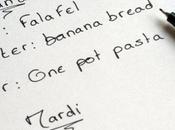 : Falafel
ter: banana bread
r: One pot pasta
Mardi